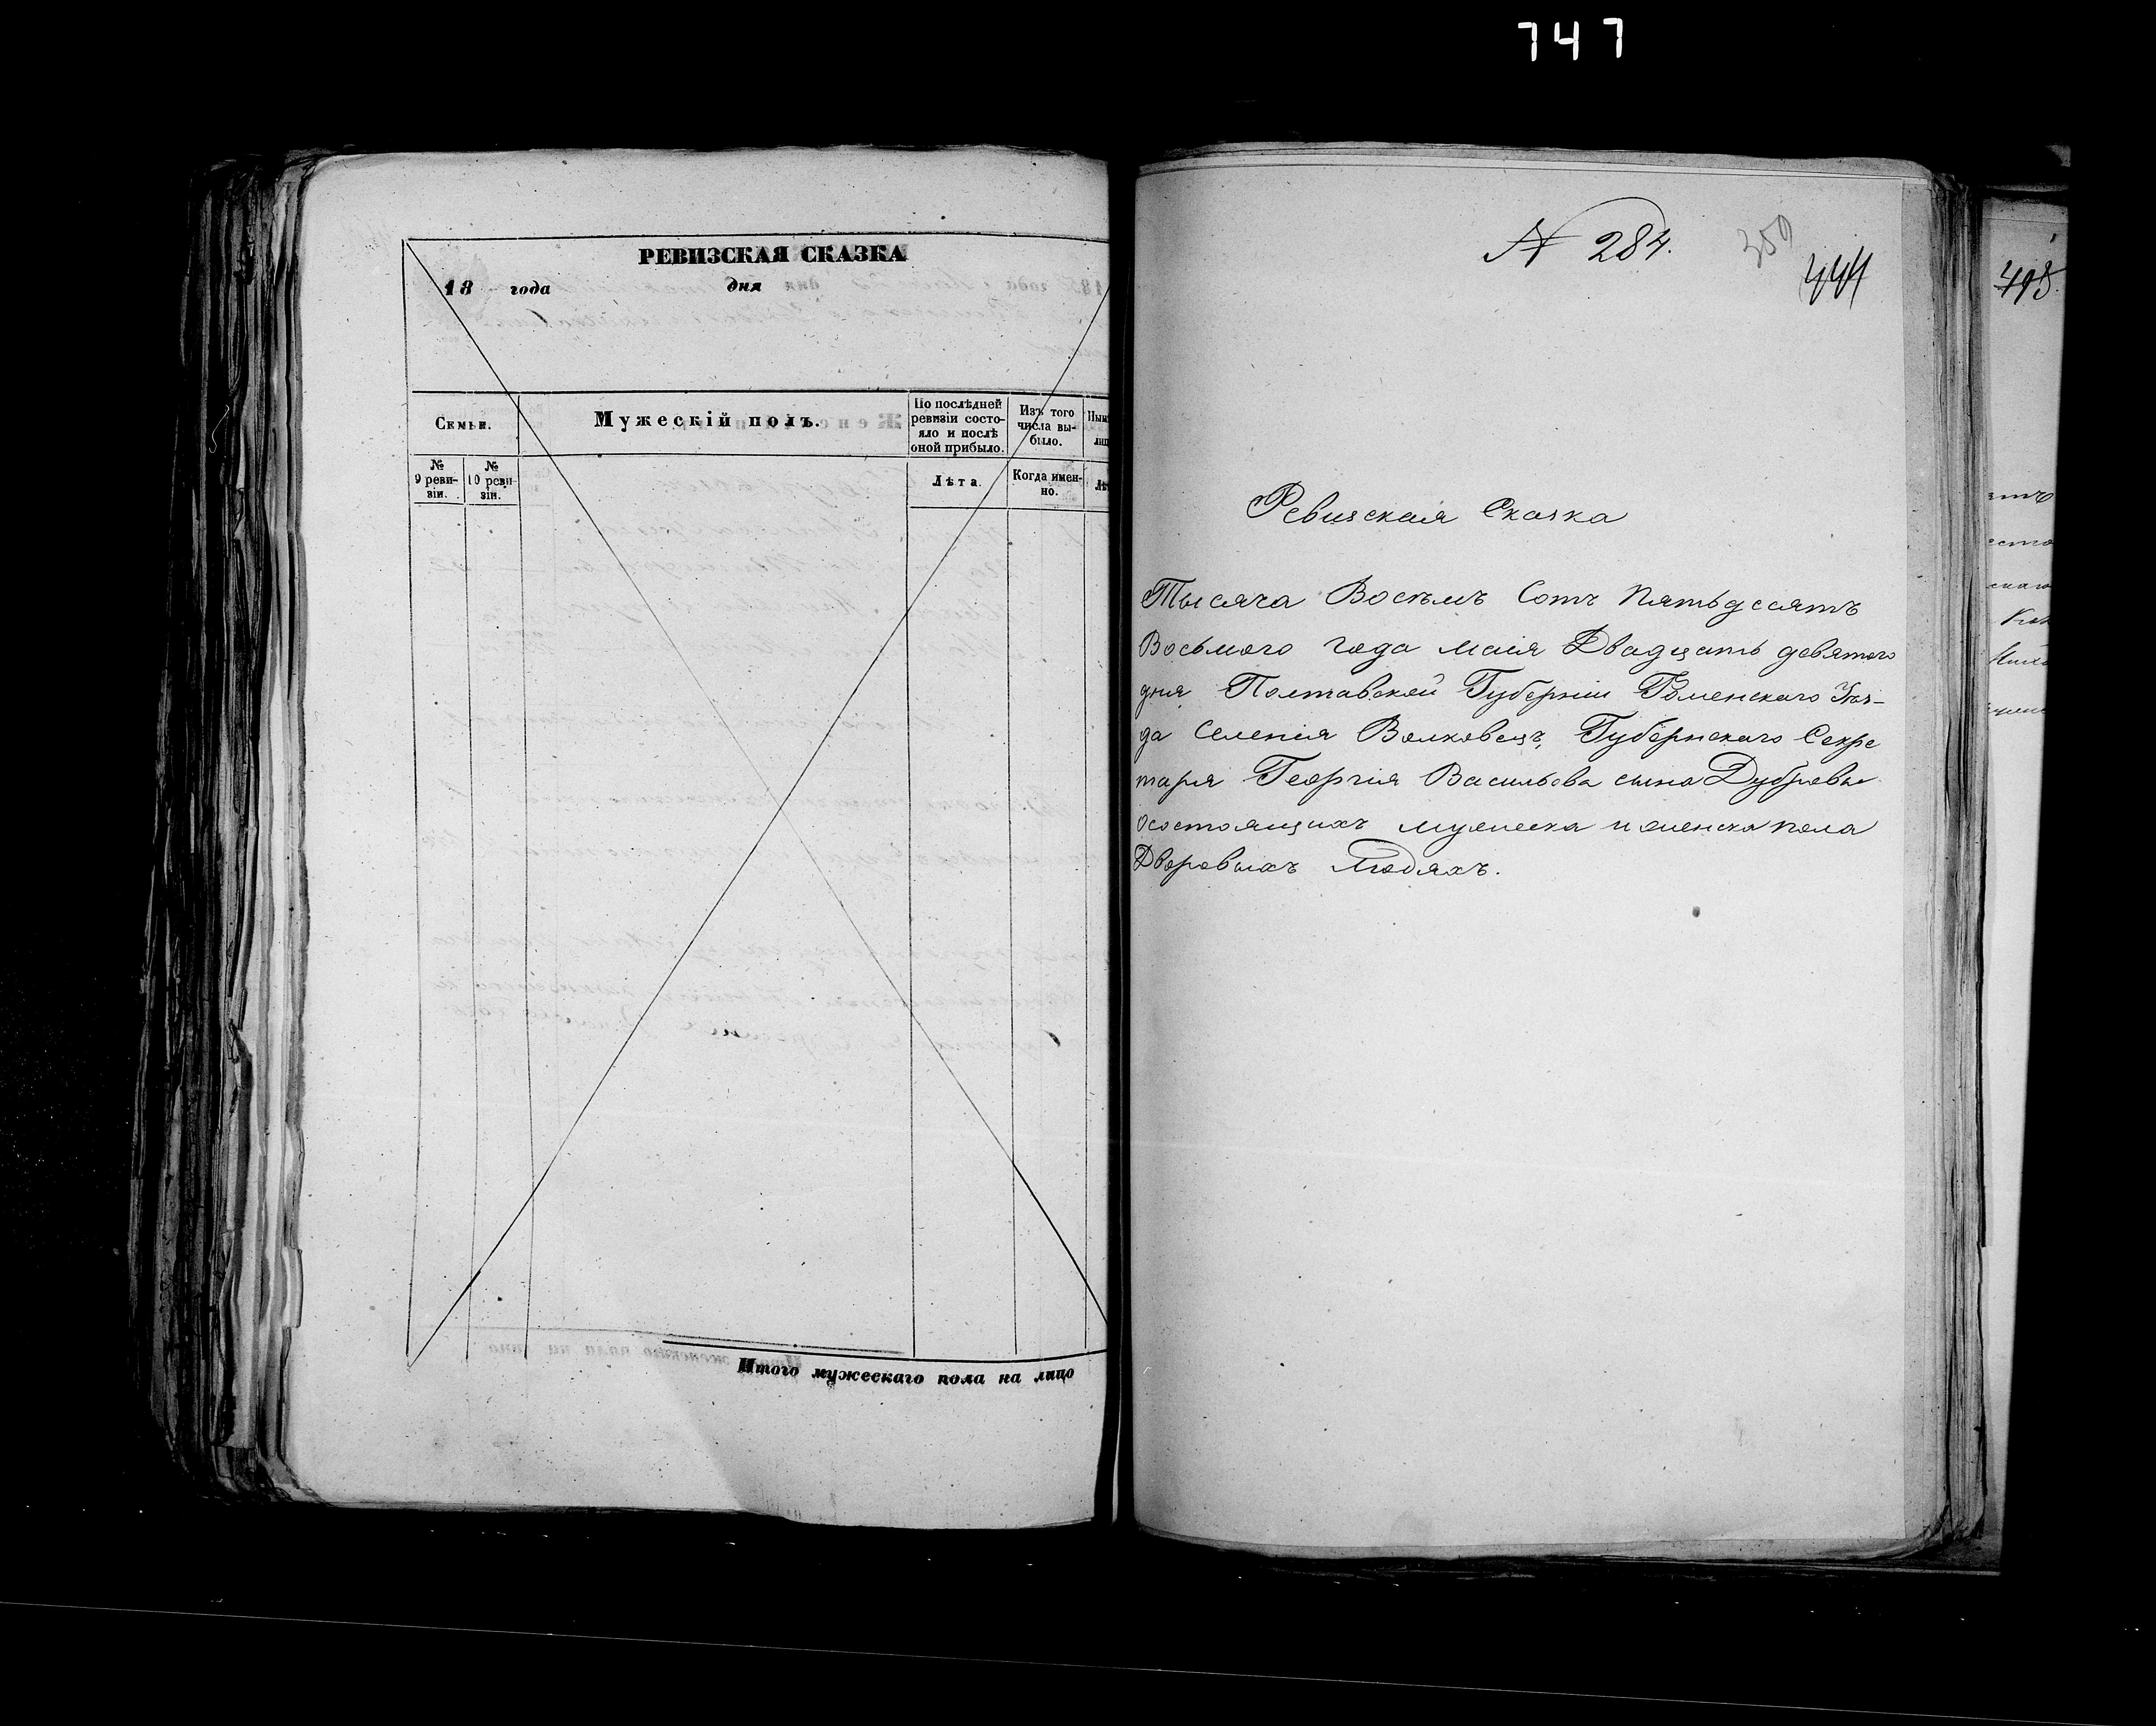 747
РЕВИЗСКАЯ СКАЗКА
18 года дня
Семьи.
Мужескій полъ.
По послѣдней ревизіи состо-
яло и послѣ
оной прибыло.
Изъ того
числа вы-
было.
№
9 реви-
зіи.
№
10 реви-
зіи.
Лѣта.
Когда имен-
но.
Итого мужескаго пола на лицо
N 284.
359
444
Ревизская Сказка
Тысяча Восемъ Сотъ Пятьдесятъ
Восьмого года маія Двадцать девятого
дня, Полтавской Губерніи Роменскаго Уѣз-
да Селенія Волковецъ, Губернскаго Секре
таря Георгія Васильева сына Дубровы
осостоящихъ мужеска и женска пола
Дворовыхъ Людяхъ.